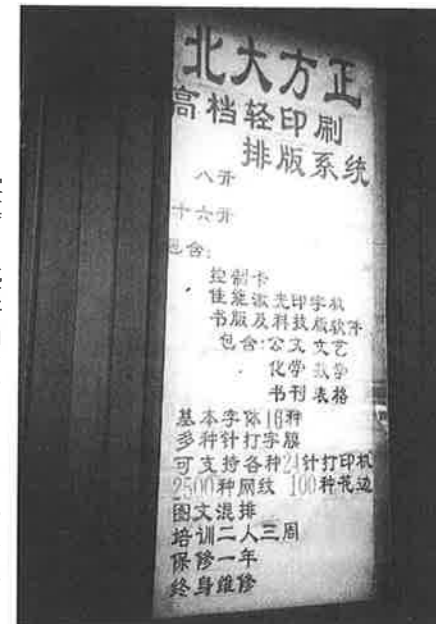 北大方正
高档轻印刷
排版系统
八开
十六开
包含:
控制卡
佳能激光印字机
书版及科技版软件
包含:公文 文艺
化学 数学
书刊 表格
基本字体16种
多种针打字膜
可支持各种24针打印机
2500种网纹 100种花边
图文混排
培训二人三周
保修一年
终身维修